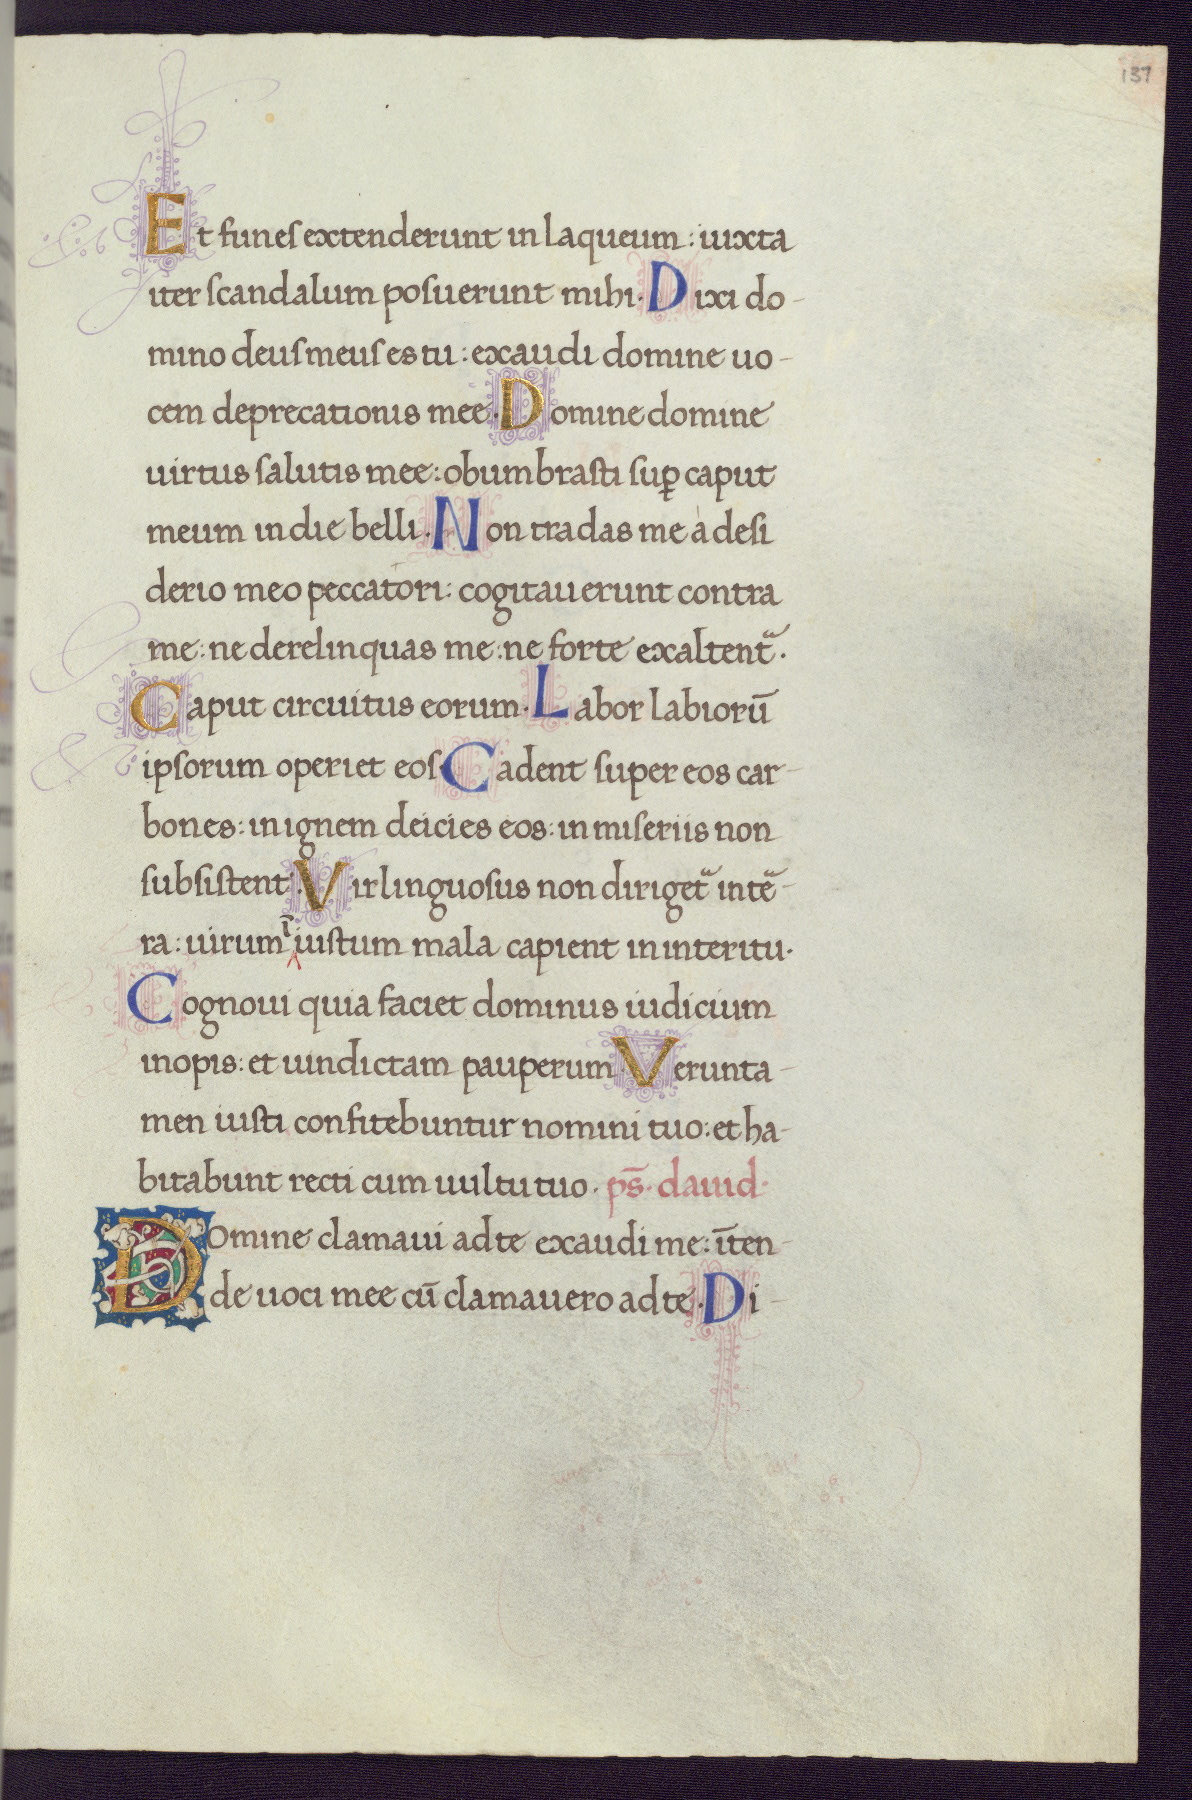 137
Et funes extenderunt in laqueum : iuxta
iter scandalum posuerunt mihi. Dixi do-
mino deus meus es tu : exaudi domine uo-
cem deprecationis mee. Domine domine
uirtus salutis mee : obumbrasti suꝑ caput
meum in die belli. Non tradas me à desi
derio meo peccatori : cogitauerunt contra
me : ne derelinquas me : ne forte exaltent᷑.
Caput circuitus eorum. Labor labiorū
ipsorum operiet eos. Cadent super eos car-
bones : in ignem deicies eos : in miseriis non
subsistent. Vir linguosus non diriget᷑ in te᷑-
ra : uirum ī iustum mala capient in interitu.
Cognoui quia faciet dominus iudicium
inopis : et uindictam pauperum. Verunta-
men iusti confitebuntur nomini tuo : et ha-
bitabunt recti cum uultu tuo. ps̄. dauid.
Domine clamaui ad te exaudi me : īten-
de uoci mee cū clamauero ad te. Di-